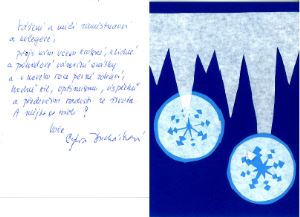 Vážení a milí zaměstnanci
a kolegové,
přeji vám všem krásné, klidné
a pohodové vánoční svátky
a v novém roce pevné zdraví,
hodně sil, optimismu, úspěchů
a především radosti ze života.
A nejen ze života?
Vaše